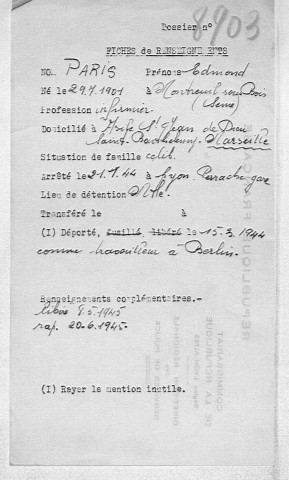 Dossier n° 8903
FICHES de RENSEIGNEMENTS
NOM PARIS Prénoms Edmond
Né le 29.7.1901 à Montreuil sous Bois
(Seine)
Profession infirmier
Domicilié à Asile St Jean de Dieu
Saint Barthélemy - Marseille
Situation de famille célib.
Arrêté le 21.1.44 à Lyon Perrache gare
Lieu de détention Mtlc.
Transféré le à
(I) Déporté, fusillé, libéré le 15.3.1944
comme travailleur à Berlin.
Renseignements complémentaires.-
libéré 8.5.1945
rap. 20-6-1945.
(I) Rayer la mention inutile.